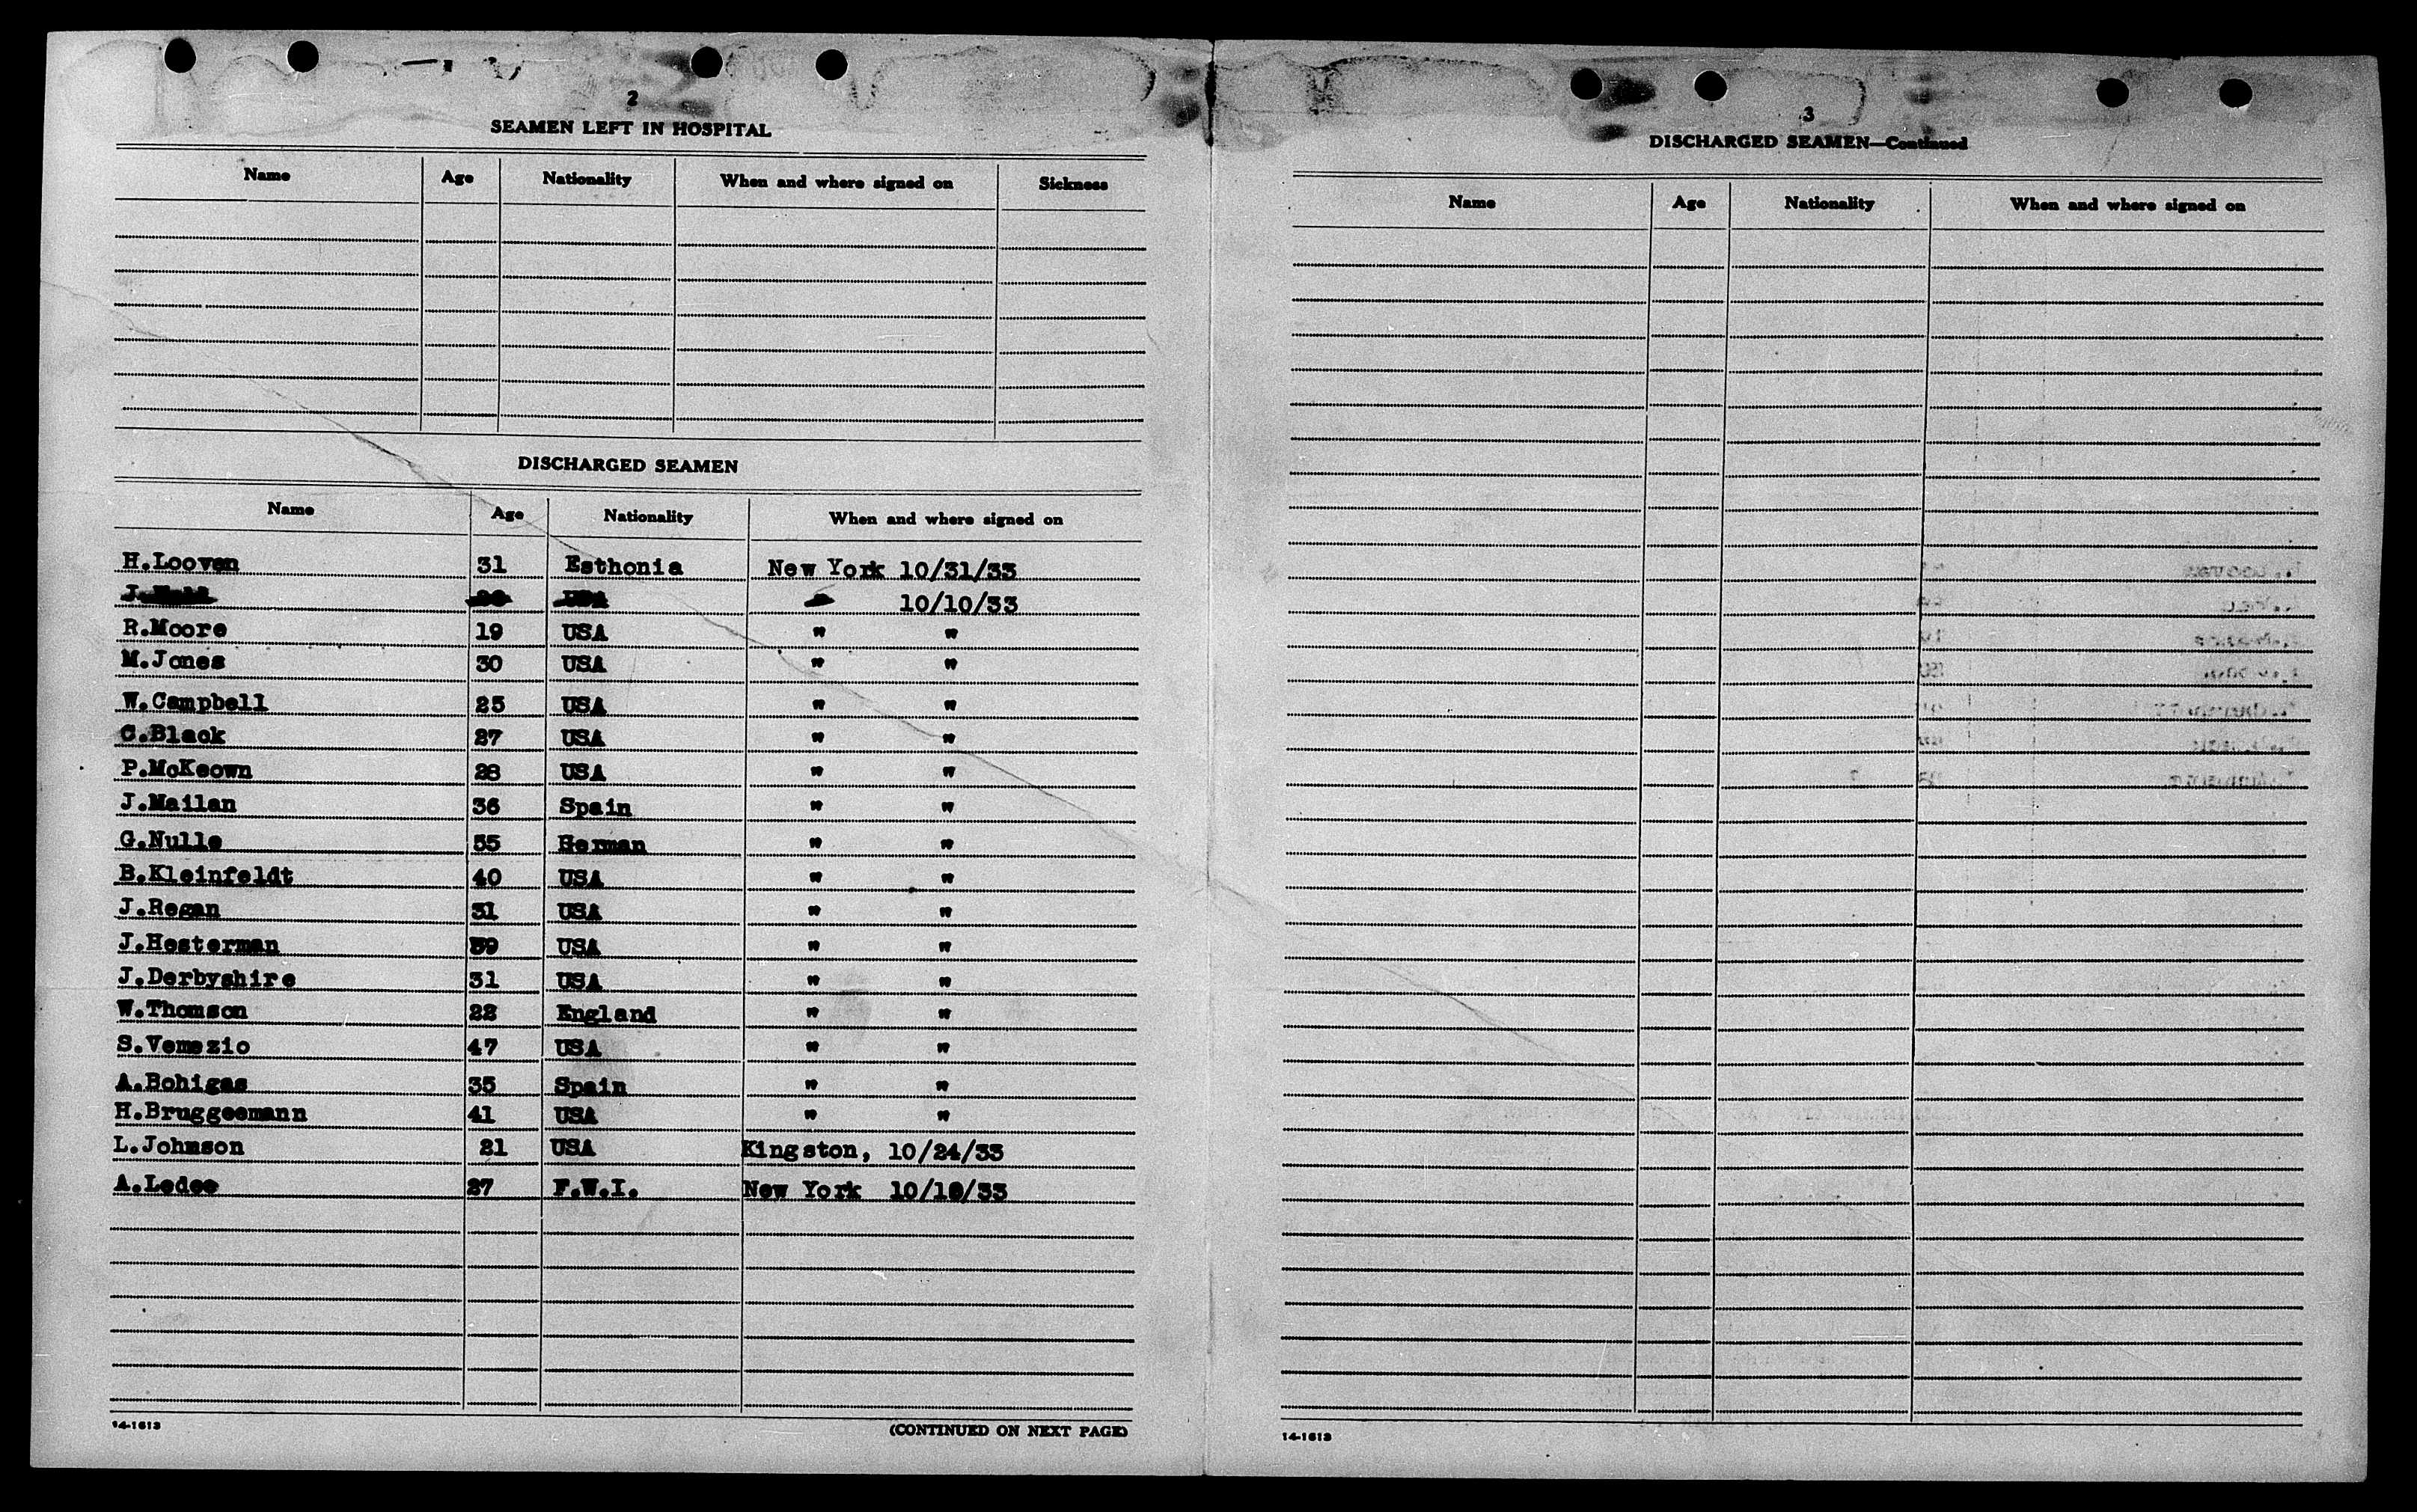 2
SEAMEN LEFT IN HOSPITAL
Name Age Nationality When and where signed on Sickness
DISCHARGED SEAMEN
Name Age Nationality When and where signed on
H.Looven 31 Esthonia New York 10/31/33
10/10/33
R.Moore 19 USA " "
M.Jones 30 USA " "
W.Campbell 25 USA " "
C.Black 27 USA " "
P.McKeown 28 USA " "
J.Mailan 36 Spain " "
G.Nulle 55 " "
B.Kleinfeldt 40 USA " "
J.Regan 31 USA " "
J.Hesterman 39 USA " "
J.Derbyshire 31 USA " "
W.Thomson 22 England " "
S.Venezio 47 USA " "
A.Bohigas 35 Spain " "
H.Bruggeemann 41 USA " "
L.Johnson 21 USA Kingston, 10/24/33
A.Ledee 27 F.W.I. New York 10/10/33
14-1613 (CONTINUED ON NEXT PAGE)
3
DISCHARGED SEAMEN—Continued
Name Age Nationality When and where signed on
14-1613